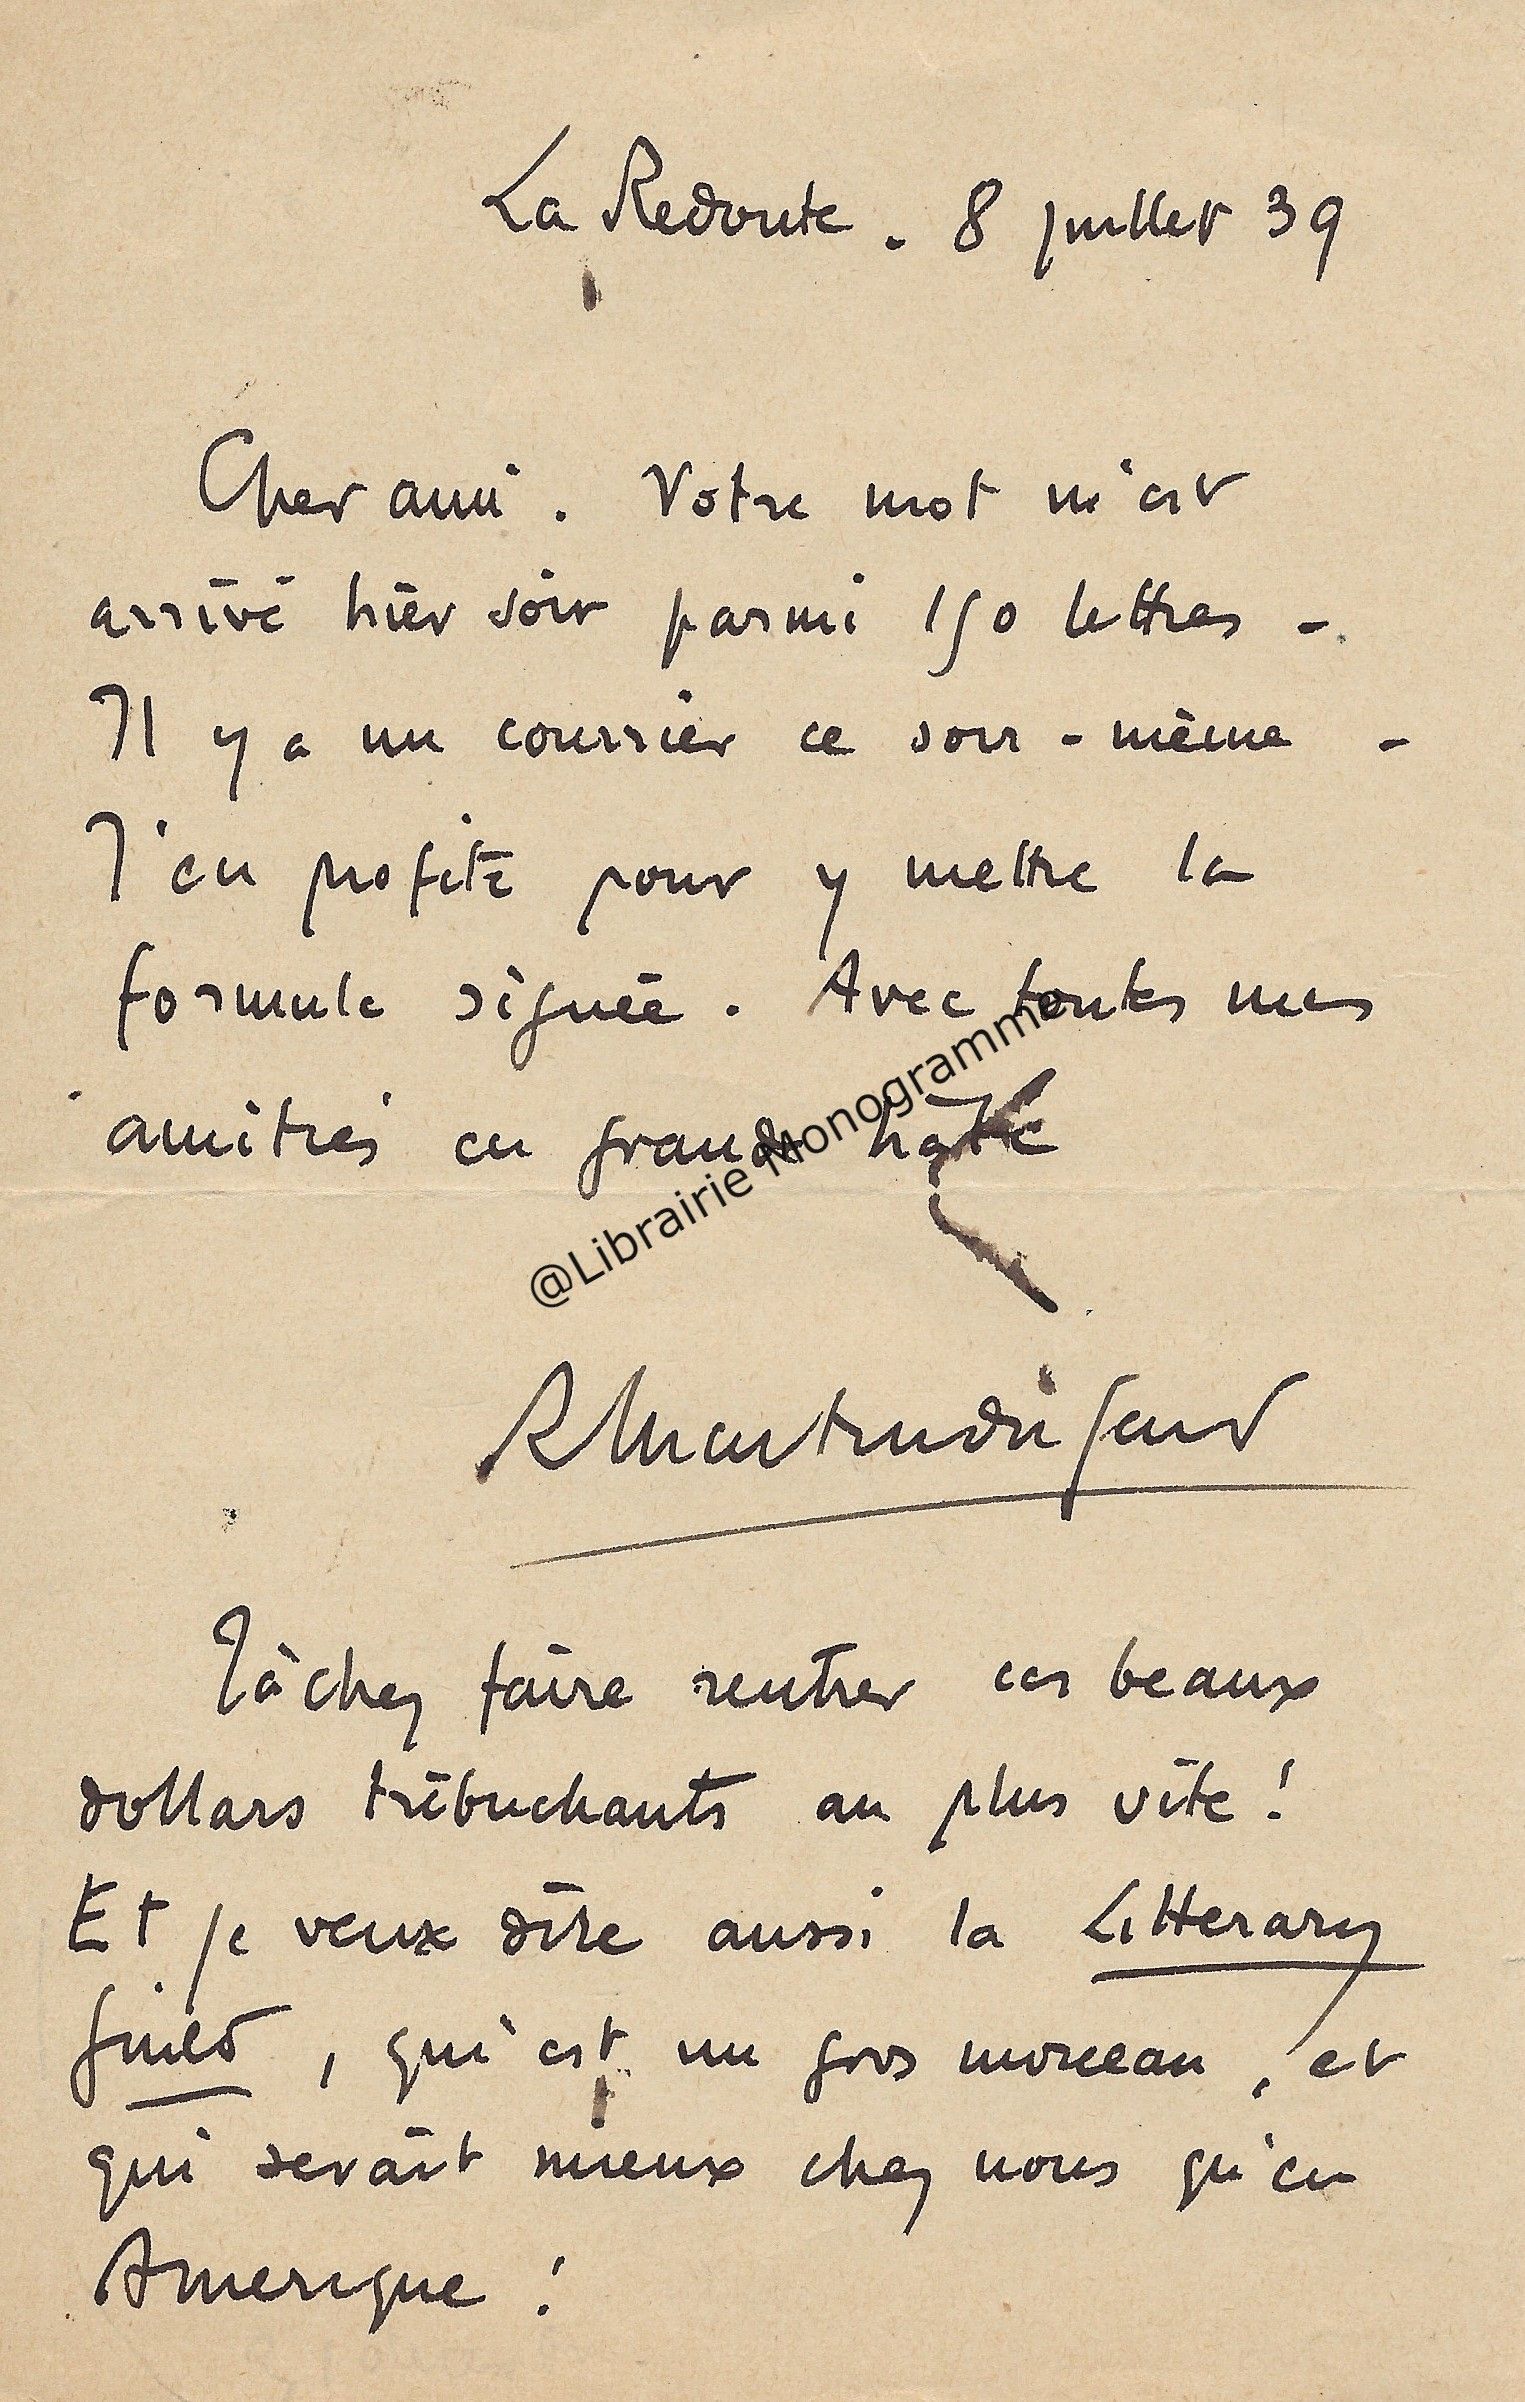 La Redoute. 8 juillet 39
Cher ami. Votre mot m'est
arrivé hier soir parmi 150 lettres -
Il y a un courrier ce soir-même -
J'en profite pour y mettre la
formule signée. Avec toutes mes
amitiés en grande hâte
@Librairie Monogramme
RMartinduGard
Tâchez faire rentrer ces beaux
dollars trébuchants au plus vite !
Et je veux dire aussi la Litterary
Guild, qui est un gros morceau, et
qui serait mieux chez nous qu'en
Amerique !